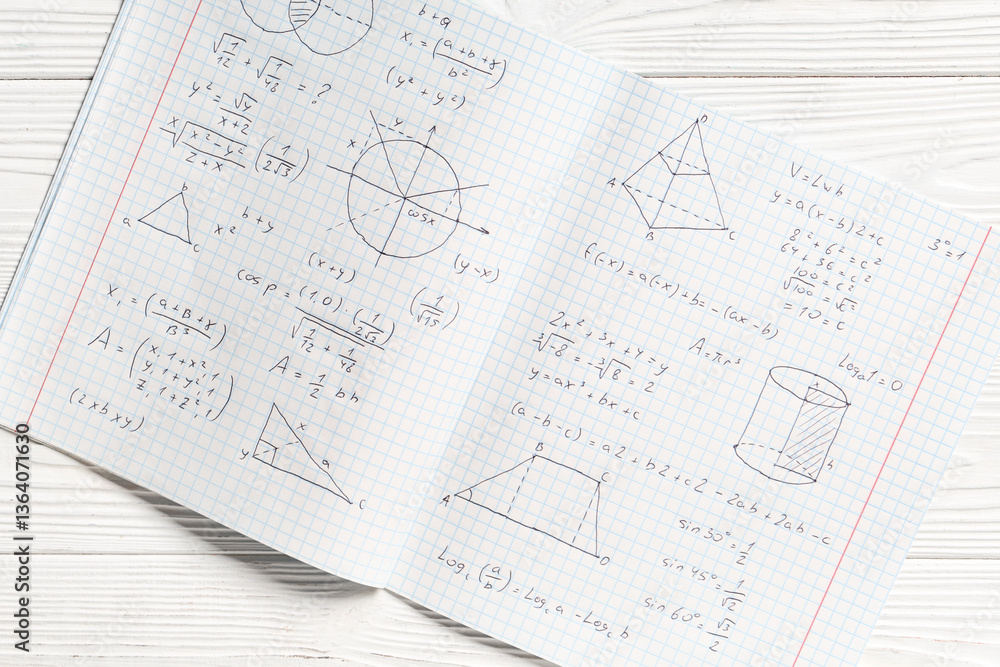 b+a
x₁ = (a+b+γ / b²)
(y² + y²)
√1/12 + √1/48 = ?
y² = √y / x+2
x√x²-y² / 2+x (1 / 2√3)
x y
cosx
b
a c
x² b+y
(x+y)
(y-x)
x₁ = (a+B+γ / B³)
cos p = (1,0) · (1 / 2√3)
√1/12 + 1/48
(1 / √15)
A = (x, 1+x², 1
y, 1+y², 1
z, 1+z², 1)
A = 1/2 bh
(2xbxy)
x
y a
c
D
A
B C
V = Lwh
y = a(x-b)2+c
8² + 6² = c²
64 + 36 = c²
100 = c²
√100 = √c²
= 10 = c
3° = 1
f(-x) = a(-x)+b = -(ax-b)
2x² + 3x + y = y
³√-8 = -³√8 = 2
y = ax³ + bx + c
A = πr³
Logₐ1 = 0
x
h
(a-b-c) = a2 + b2 + c2 - 2ab + 2ab - c
B
C
A
D
sin 30° = 1/2
sin 45° = 1/√2
sin 60° = √3/2
Log꜀(a/b) = Log꜀a - Log꜀b
Adobe Stock | #1364071630
Adobe Stock